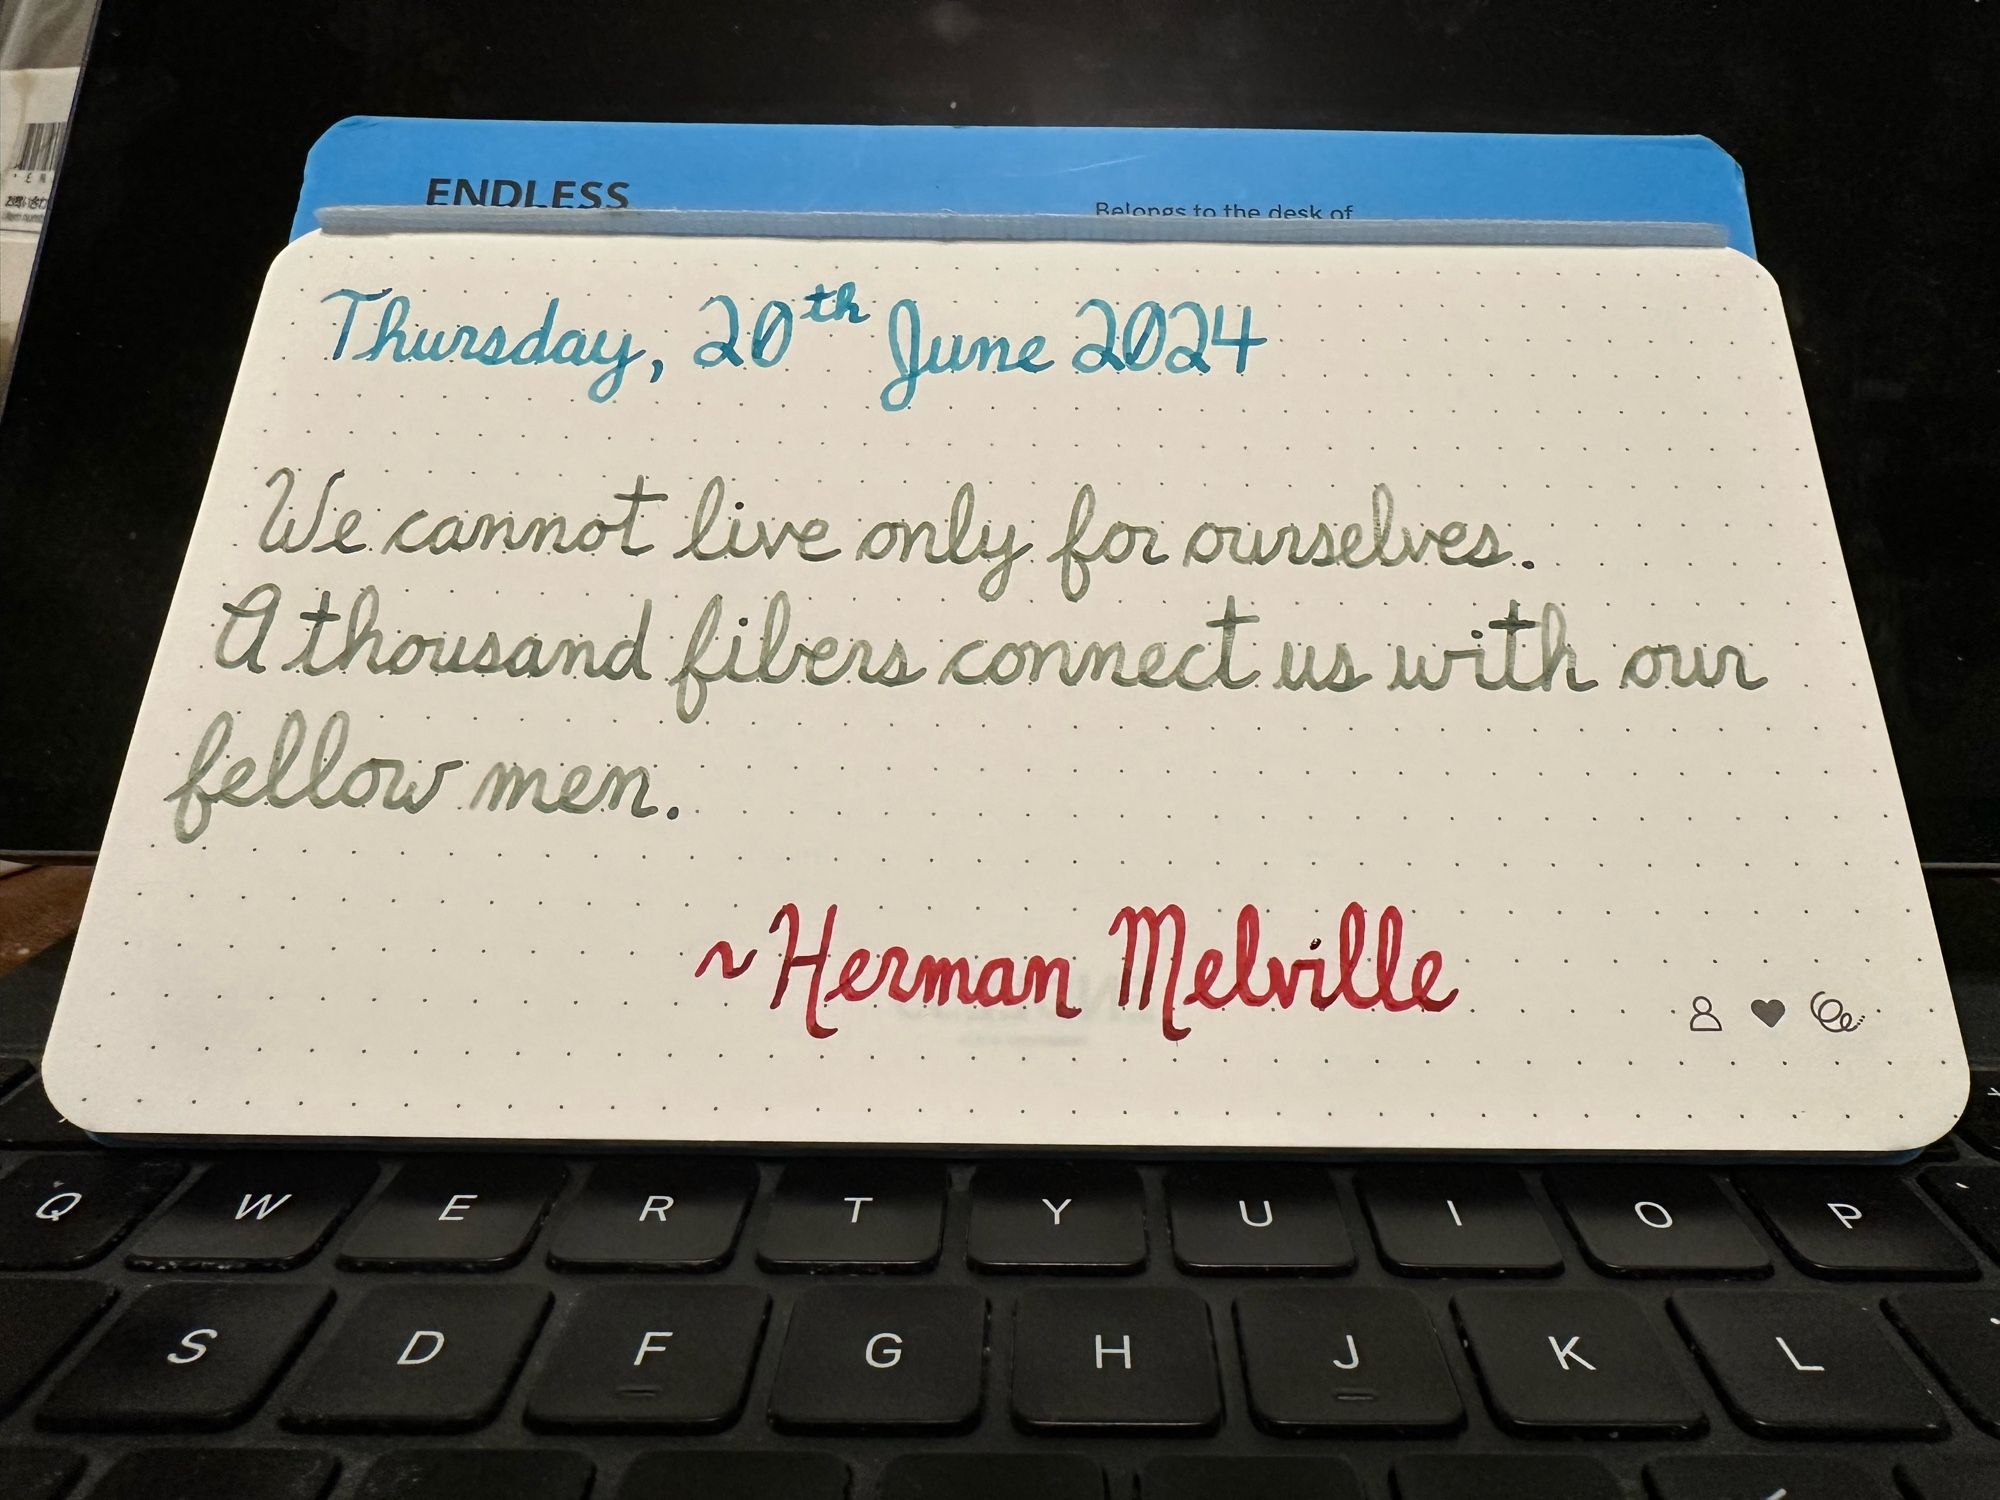 ENDLESS
Belongs to the desk of
Thursday, 20th June 2024
We cannot live only for ourselves.
A thousand fibers connect us with our
fellow men.
~Herman Melville
Q W E R T Y U I O P
S D F G H J K L